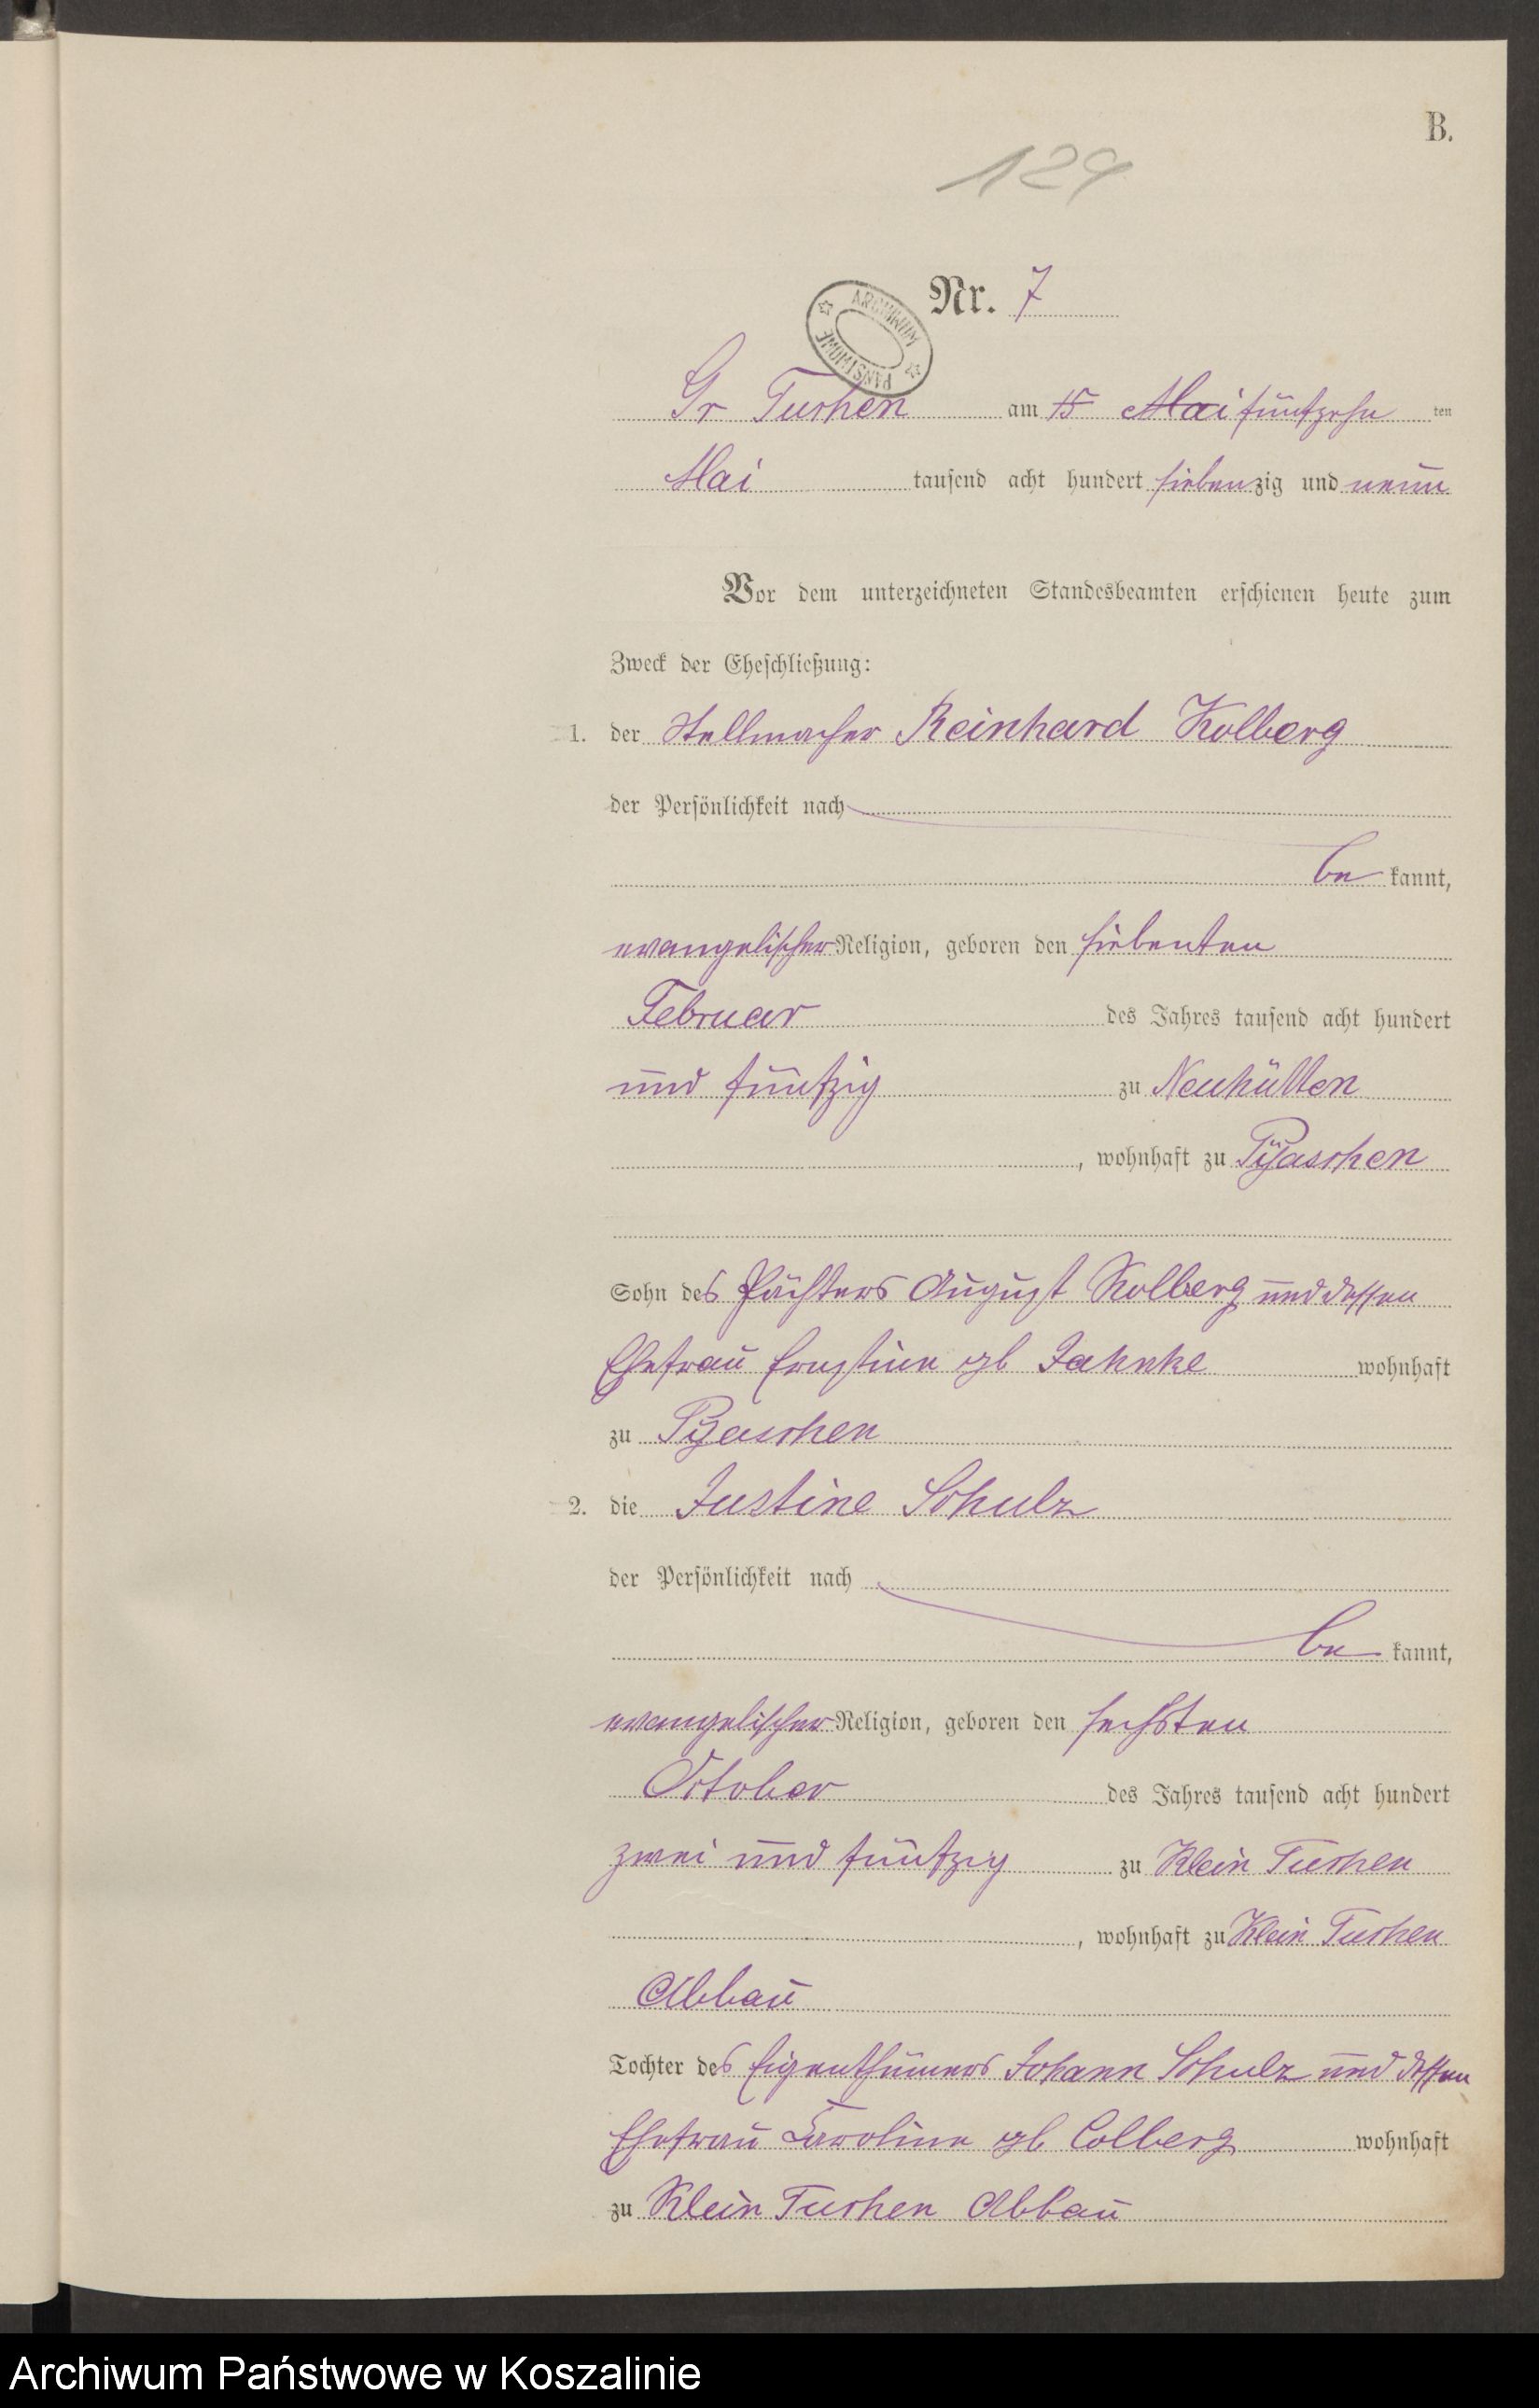 B.
129
Nr. 7
ARCHIWUM PAŃSTWOWE
Gr Tuchen am 15 Mai fünfzehn ten
Mai tausend acht hundert siebenzig und neun
Vor dem unterzeichneten Standesbeamten erschienen heute zum
Zweck der Eheschließung:
1. der Stellmacher Reinhard Kolberg
der Persönlichkeit nach
be kannt,
evangelischer Religion, geboren den siebenten
Februar des Jahres tausend acht hundert
und fünfzig zu Neuhütten
, wohnhaft zu Pÿaschen
Sohn des Pächters August Kolberg und dessen
Ehefrau Ernstine gb Jahnke wohnhaft
zu Pÿaschen
2. die Justine Schulz
der Persönlichkeit nach
be kannt,
evangelischer Religion, geboren den sechsten
October des Jahres tausend acht hundert
zwei und fünfzig zu Klein Tuchen
, wohnhaft zu Klein Tuchen
Abbau
Tochter des Eigenthümers Johann Schulz und dessen
Ehefrau Caroline gb Colberg wohnhaft
zu Klein Tuchen Abbau
Archiwum Państwowe w Koszalinie